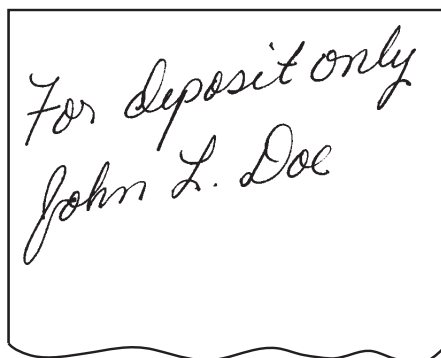 For deposit only
John L. Doe